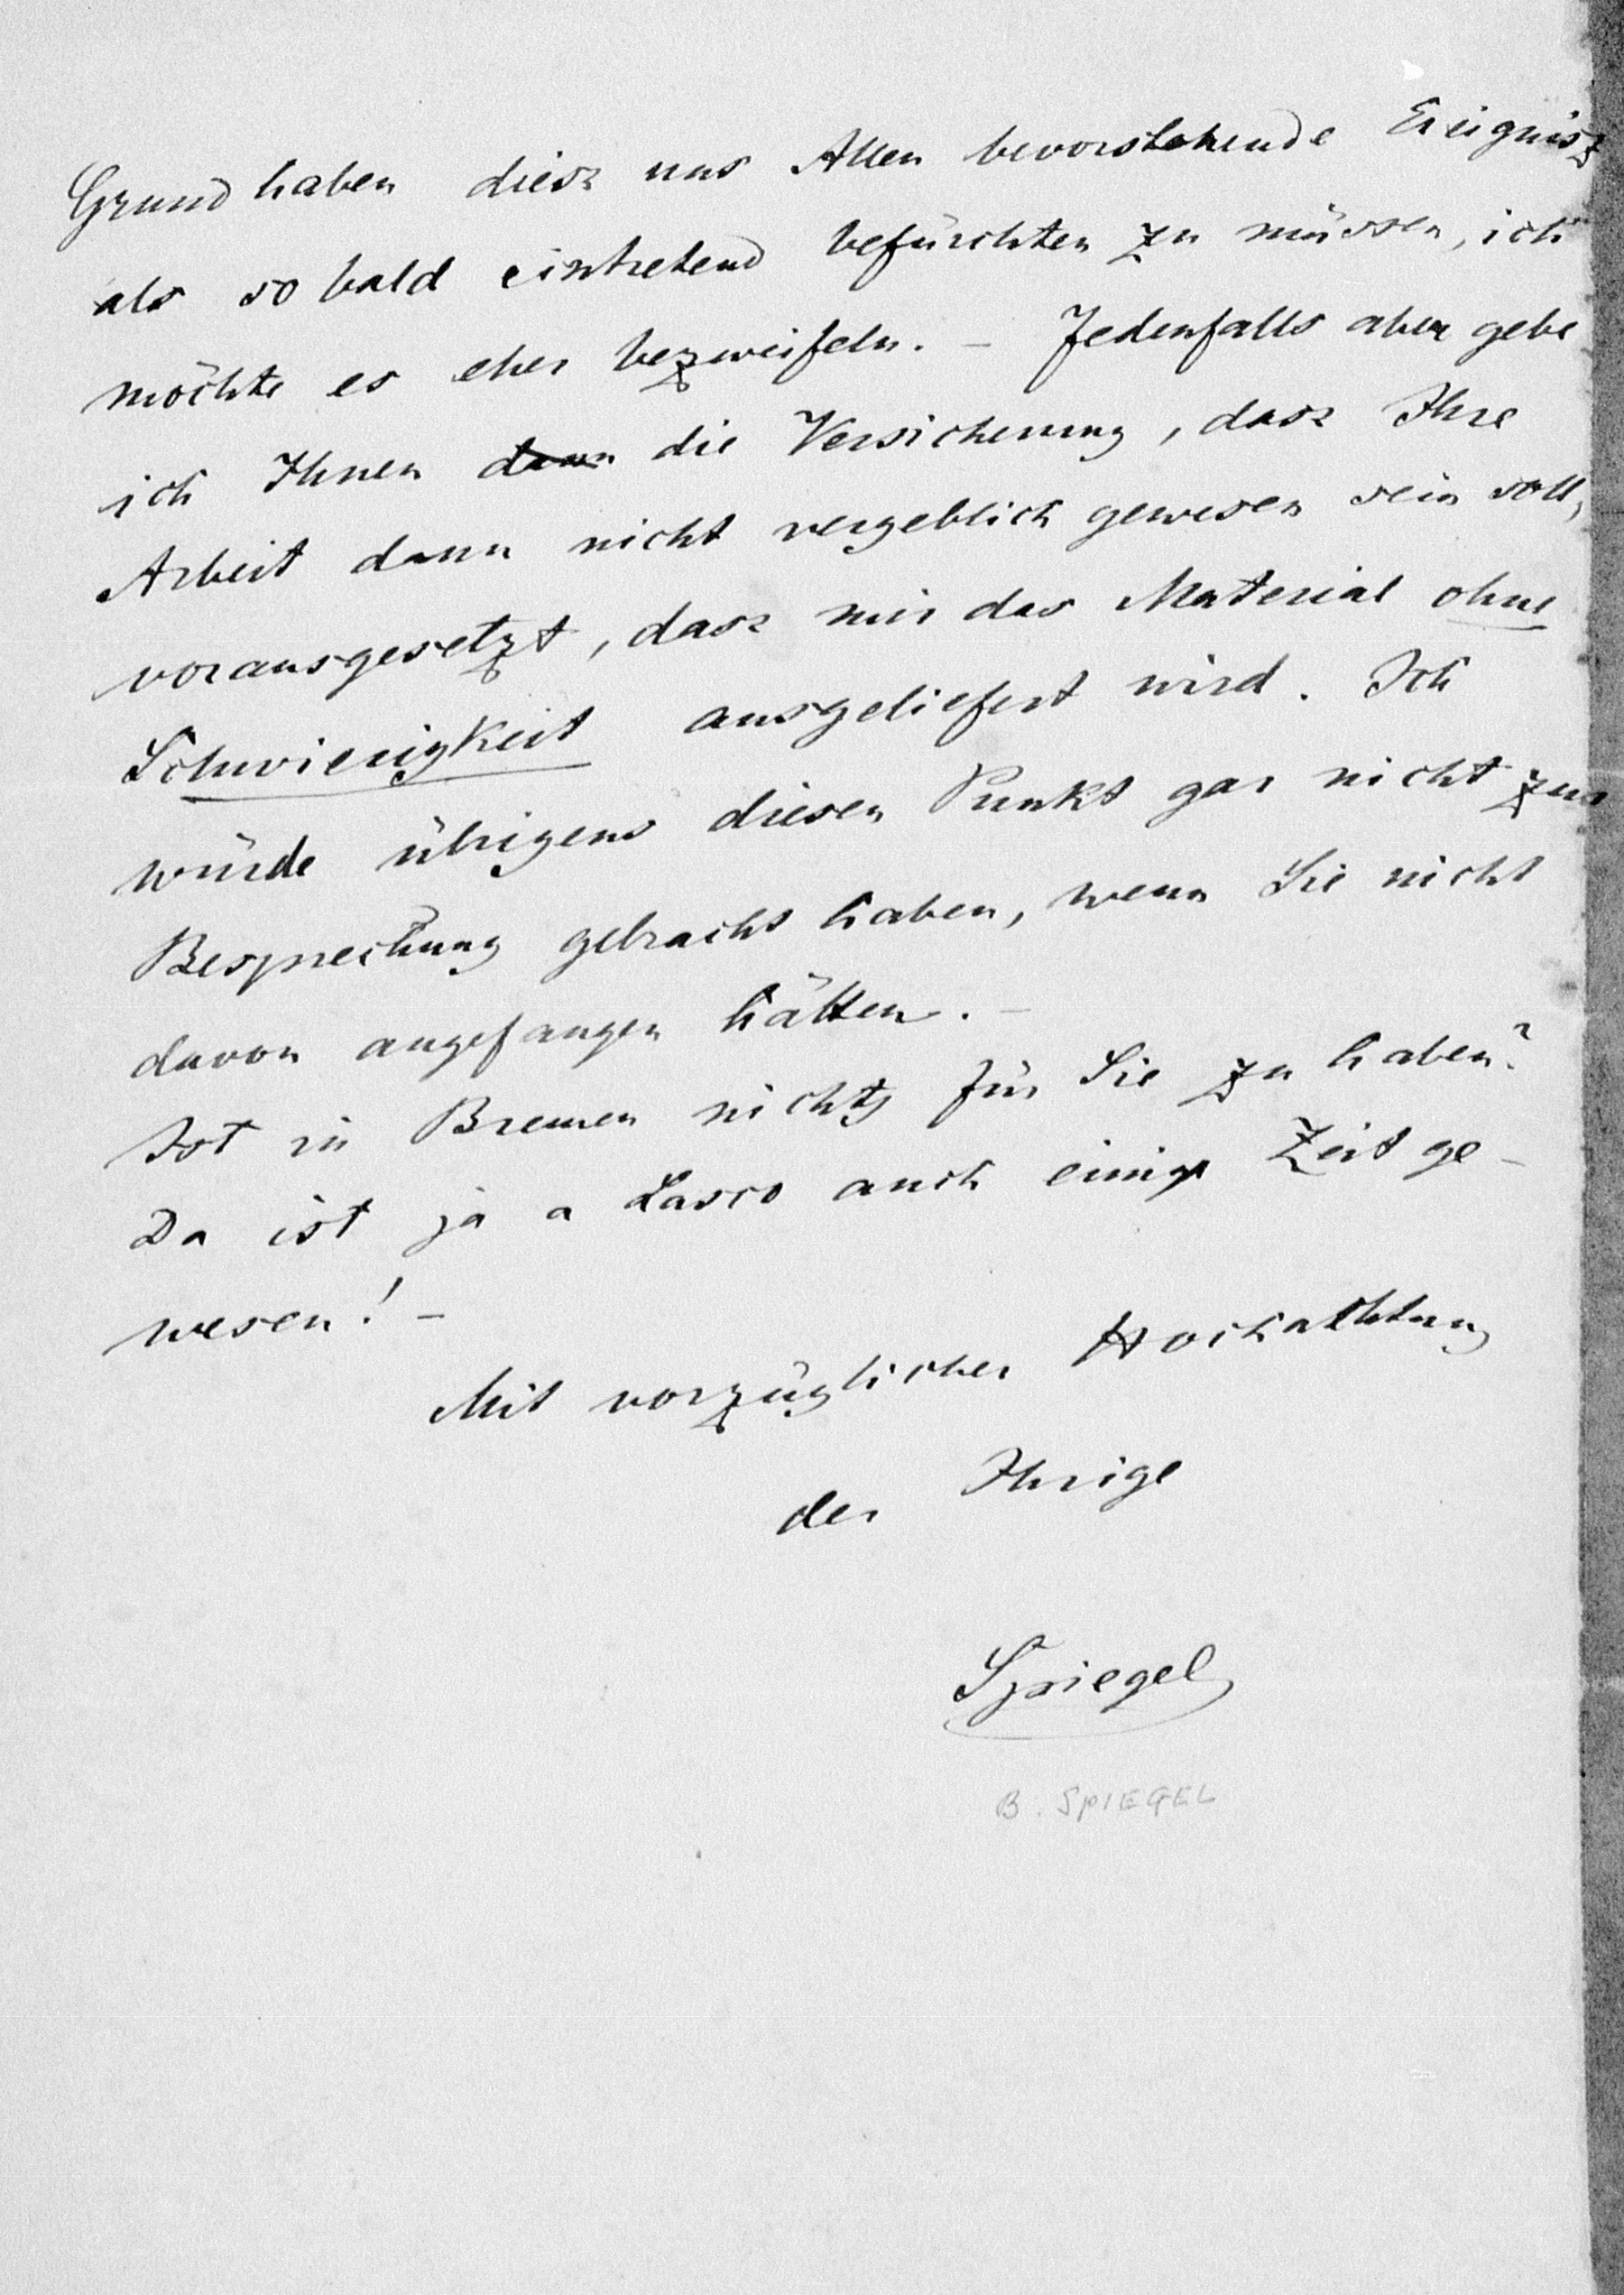 Grund haben diess uns Allen bevorstehende Ereigniss
als so bald eintretend befürchten zu müssen, ich
möchte es eher bezweifeln. – Jedenfalls aber gebe
ich Ihnen dann die Versicherung, dass Ihre
Arbeit dann nicht vergeblich gewesen sein soll,
vorausgesetzt, dass mir das Material ohne
Schwierigkeit ausgeliefert wird. Ich
würde übrigens diesen Punkt gar nicht zur
Besprechung gebracht haben, wenn Sie nicht
davon angefangen hätten. –
Ist in Bremen nichts für Sie zu haben?
Da ist ja a Lasco auch einige Zeit ge-
wesen! –
Mit vorzüglicher Hochachtung
der Ihrige
Spiegel
B. SPIEGEL